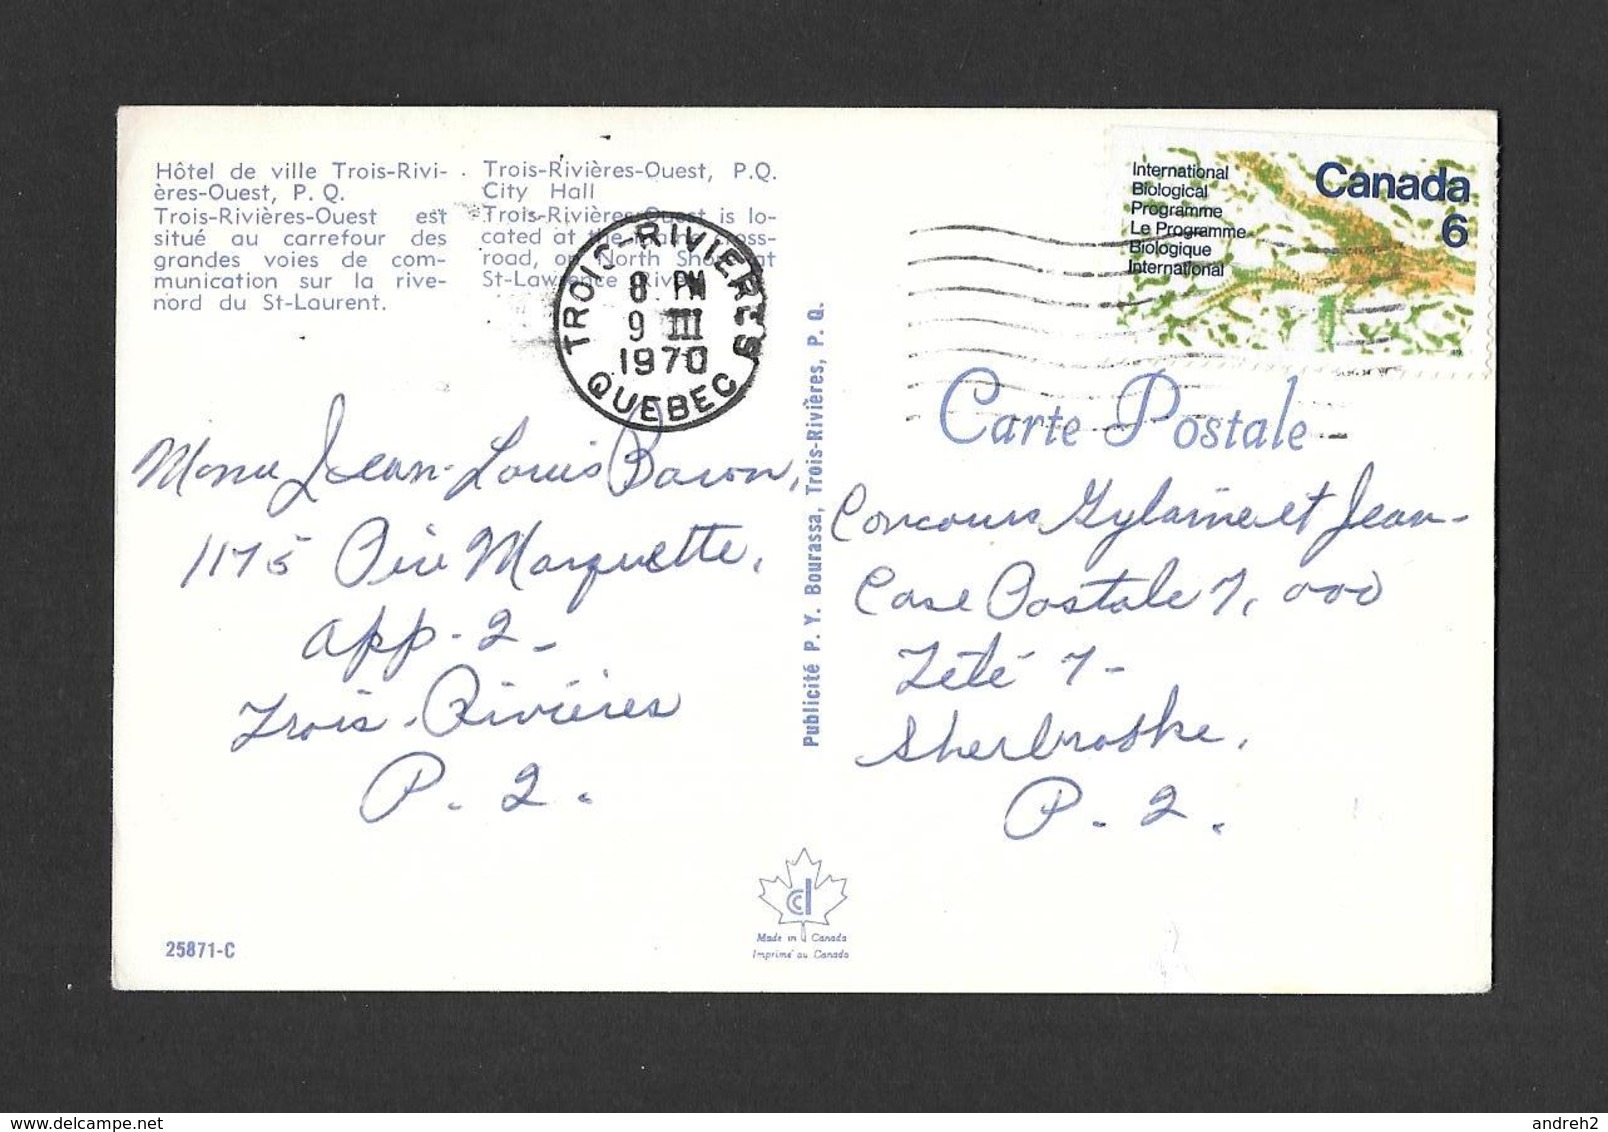 Hôtel de ville Trois-Rivi-
ères-Ouest, P. Q.
Trois-Rivières-Ouest est
situé au carrefour des
grandes voies de com-
munication sur la rive-
nord du St-Laurent.
Trois-Rivières-Ouest, P.Q.
City Hall
Trois-Rivières-Ouest is lo-
cated at the main cross-
road, on North Shore at
St-Lawrence River.
TROIS-RIVIERES
8 PM
9 III
1970
QUEBEC
International
Biological
Programme
Le Programme
Biologique
International
Canada
6
Carte Postale
Jean-Louis Baron,
1175 Père Marquette,
app-2-
Trois-Rivières
P. Q.
Publicité P. Y. Bourassa, Trois-Rivières, P. Q.
Concours Gylaine et Jean-
Case Postale 7,000
Télé 7-
Sherbrooke,
P. Q.
25871-C
Made in Canada
Imprimé au Canada
andreh2